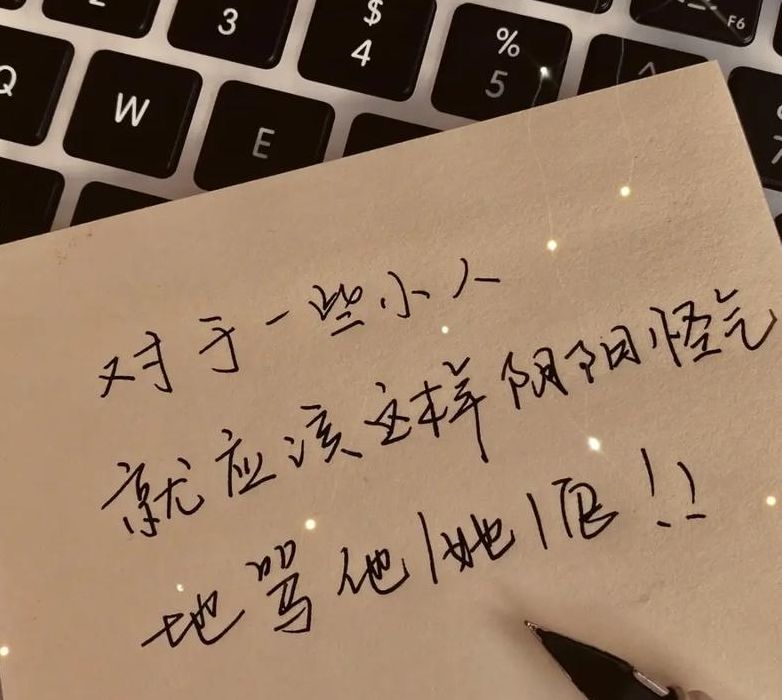 F6
$
3
4
%
5
^
7
Q
W
E
对于一些小人
就应该这样阴阳怪气
地骂他/她/!!